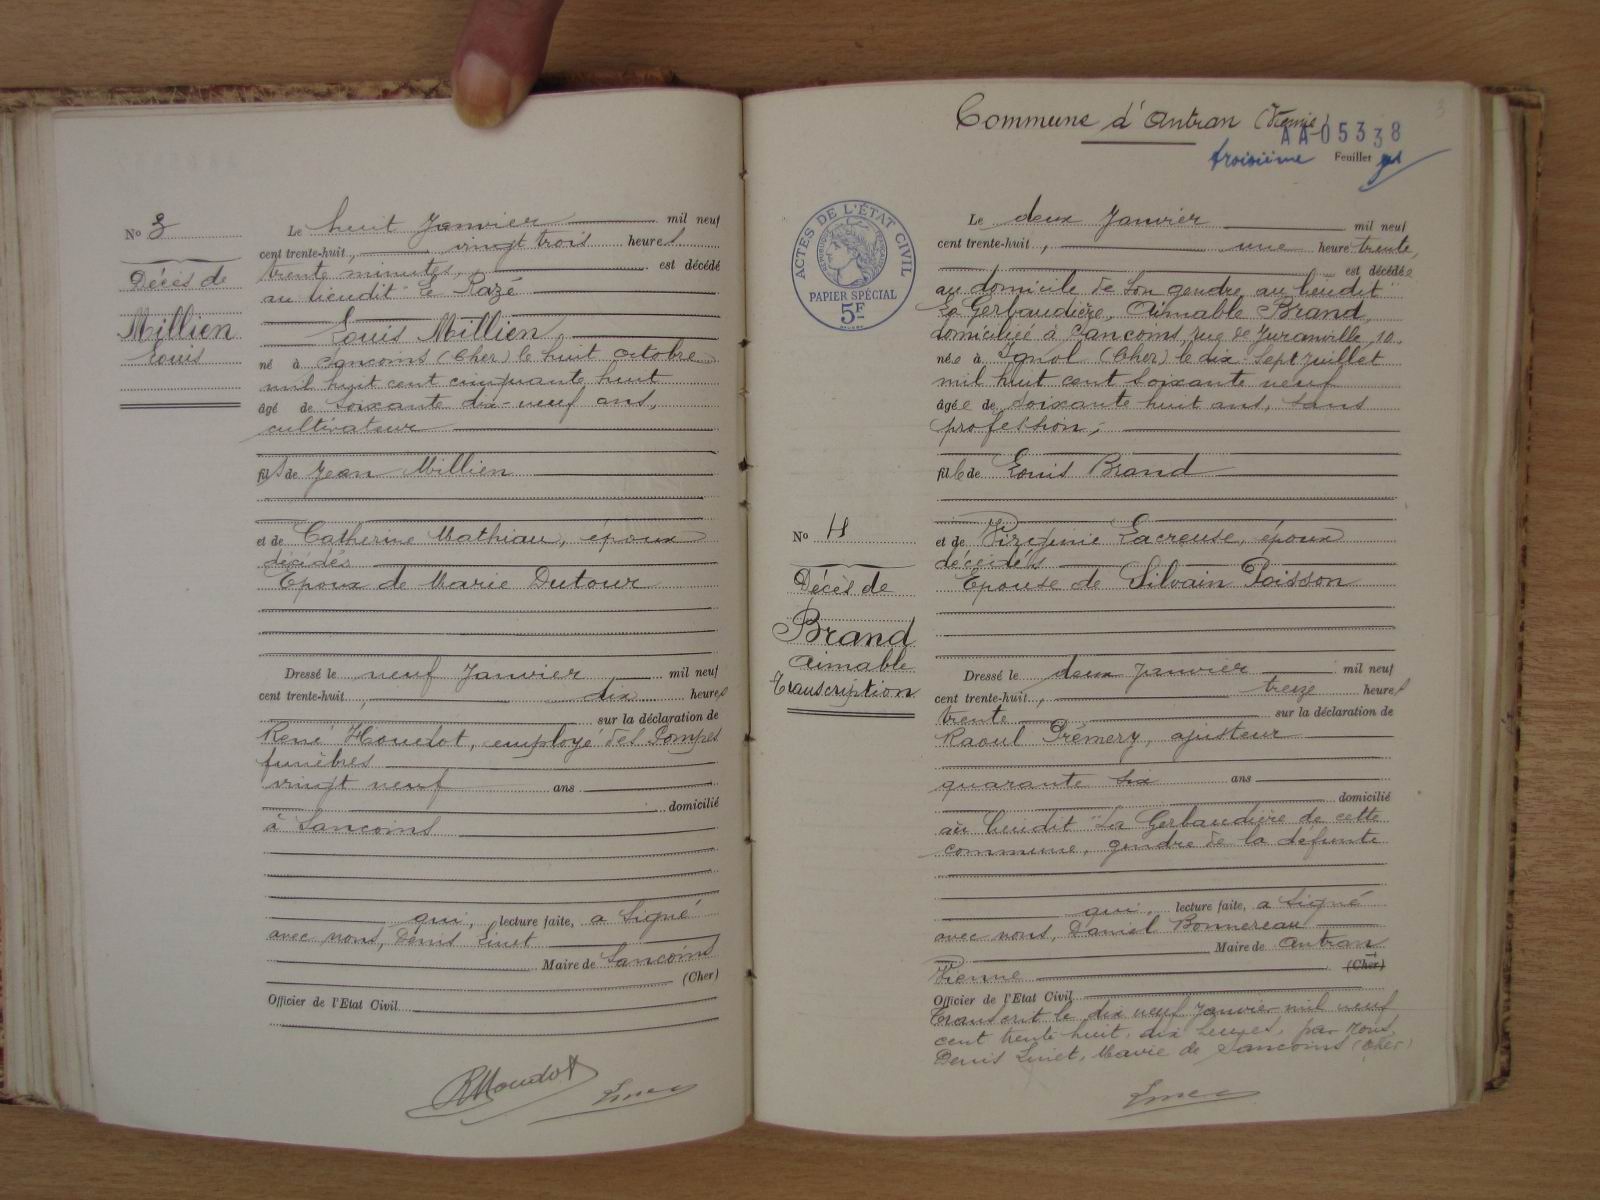 No 3
Décès de
Millien
Louis
Le huit Janvier mil neuf
cent trente-huit, vingt trois heures
trente minutes, est décédé
au lieudit "Le Razé
Louis Millien,
né à Sancoins (Cher) le huit octobre
mil huit cent cinquante huit
âgé de soixante dix-neuf ans,
cultivateur
fils de Jean Millien
et de Catherine Mathiau, époux
décédés
Epoux de Marie Dutour
Dressé le neuf Janvier mil neuf
cent trente-huit, dix heures
sur la déclaration de
René Houdot, employé des Pompes
funèbres
vingt neuf ans
domicilié
à Sancoins
qui, lecture faite, a signé
avec nous, Denis Linet
Maire de Sancoins
(Cher)
Officier de l'Etat Civil
RHoudot
Linet
Commune d'Antran (Vienne)
AA 05338
troisième Feuillet
3
ACTES DE L'ÉTAT CIVIL
RÉPUBLIQUE FRANÇAISE
PAPIER SPÉCIAL
5F
No 4
Décès de
Brand
Aimable
Transcription
Le deux Janvier mil neuf
cent trente-huit, une heure trente,
est décédée
au domicile de son gendre au lieudit
La Gerbaudière, Aimable Brand,
domiciliée à Sancoins, rue de Juranville, 10.
née à Ignol (Cher) le dix sept juillet
mil huit cent soixante neuf
âgée de soixante huit ans, sans
profession,
fille de Louis Brand
et de Virginie Lacreuse, époux
décédés
Epouse de Silvain Poisson
Dressé le deux Janvier mil neuf
cent trente-huit, treize heures
trente sur la déclaration de
Raoul Prémery, ajusteur
quarante six ans
domicilié
au lieudit "La Gerbaudière de cette
commune, gendre de la défunte
qui, lecture faite, a signé
avec nous, Daniel Bonnereau
Maire de Antran
Vienne (Cher)
Officier de l'Etat Civil
Transcrit le dix neuf Janvier mil neuf
cent trente-huit, dix heures, par nous,
Denis Linet, Maire de Sancoins (Cher)
Linet